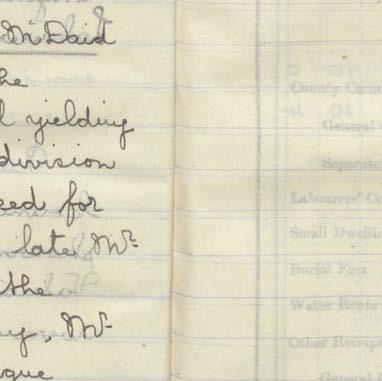 McDaid
he
l yielding
division
eed for
late Mr
the
y, Mr
gue
County Coun
General
Separate
Labourers' Co
Small Dwellin
Burial Fees
Water Rents
Other Receip